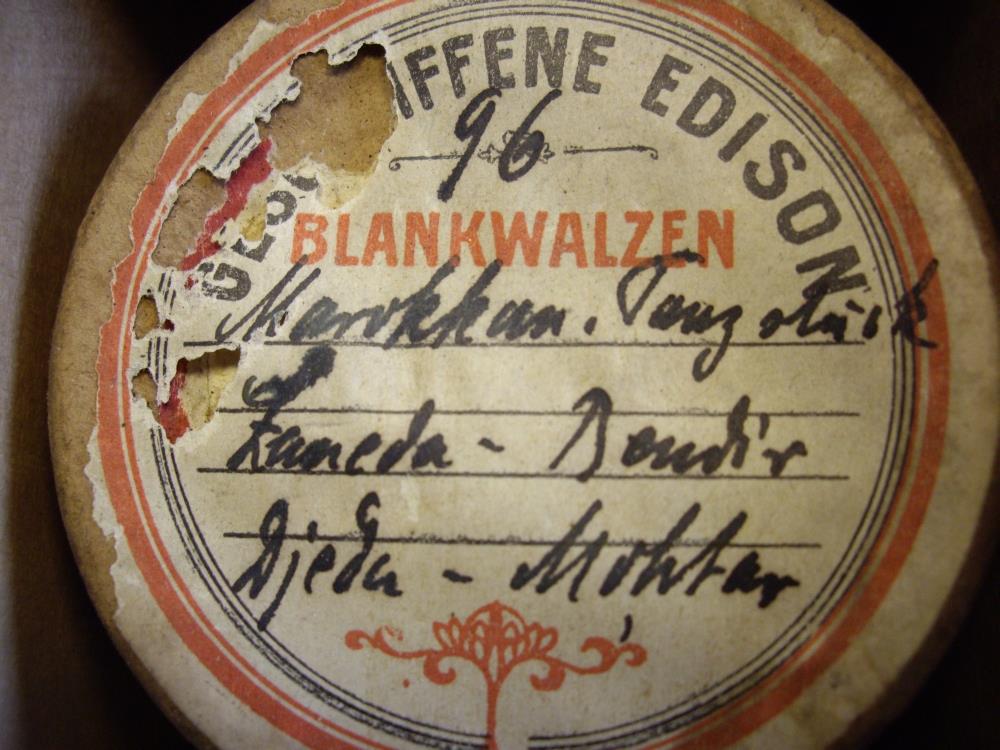 GESCHLIFFENE EDISON
96
BLANKWALZEN
Marokkan. Tanzstück
Zameda - Bendir
Djeda - Mohtar